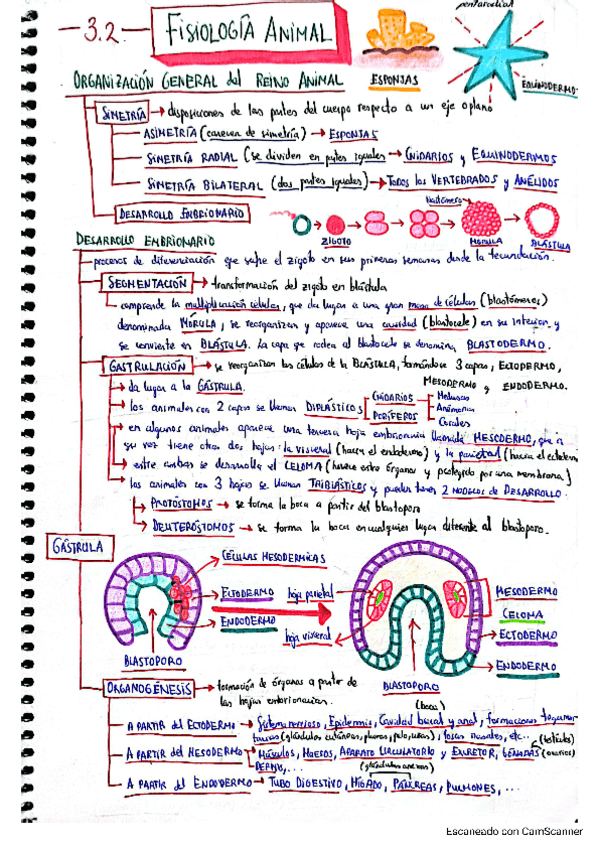 pentaradial
3.2. FISIOLOGÍA ANIMAL
ESPONJAS
EQUINODERMO
ORGANIZACIÓN GENERAL del REINO ANIMAL
SIMETRÍA → disposiciones de las partes del cuerpo respecto a un eje o plano
ASIMETRÍA (carecen de simetría) → ESPONJAS
SIMETRÍA RADIAL (se dividen en partes iguales → CNIDARIOS y EQUINODERMOS
SIMETRÍA BILATERAL (dos partes iguales) → TODOS los VERTEBRADOS y ANÉLIDOS
DESARROLLO EMBRIONARIO
blastómeros
ZIGOTO
MÓRULA
BLÁSTULA
DESARROLLO EMBRIONARIO
procesos de diferenciación que sufre el zigoto en sus primeras semanas desde la fecundación.
SEGMENTACIÓN → transformación del zigoto en blástula
comprende la multiplicación celular, que da lugar a una gran masa de células (blastómeros)
denominada MÓRULA, se reorganizan y aparece una cavidad (blastocele) en su interior, y
se convierte en BLÁSTULA. La capa que rodea al blastocele se denomina, BLASTODERMO.
GASTRULACIÓN → se reorganizan las células de la BLÁSTULA, formándose 3 capas, ECTODERMO,
MESODERMO y ENDODERMO.
da lugar a la GÁSTRULA.
los animales con 2 capas se llaman DIPLÁSTICOS
CNIDARIOS
PORÍFEROS
Medusas
Anémonas
Corales
en algunos animales aparece una tercera hoja embrionaria llamada MESODERMO, que a
su vez tiene otras dos hojas: la visceral (hacia el endodermo) y la parietal (hacia el ectodermo
entre ambas se desarrolla el CELOMA (hueco entre órganos y protegido por una membrana)
los animales con 3 hojas se llaman TRIBLÁSTICOS y pueden tener 2 MODELOS de DESARROLLO.
PROTÓSTOMOS → se forma la boca a partir del blastoporo
DEUTERÓSTOMOS → se forma la boca en cualquier lugar diferente al blastoporo.
GÁSTRULA
CÉLULAS MESODÉRMICAS
ECTODERMO
ENDODERMO
BLASTOPORO
hoja parietal
hoja visceral
MESODERMO
CELOMA
ECTODERMO
ENDODERMO
BLASTOPORO
(boca)
ORGANOGÉNESIS → formación de órganos a partir de
las hojas embrionarias.
A PARTIR del ECTODERMO → Sistema nervioso, Epidermis, Cavidad bucal y anal, formaciones tegumen-
tarias (glándulas cutáneas, plumas, pelos, uñas), fosas nasales, etc..
A PARTIR del MESODERMO → Músculos, HUESOS, APARATO CIRCULATORIO y EXCRETOR, GÓNADAS (testículos) (ovarios)
DERMIS, ...
(glándulas anexas)
A PARTIR del ENDODERMO → TUBO DIGESTIVO, HÍGADO, PÁNCREAS, PULMONES, ...
Escaneado con CamScanner